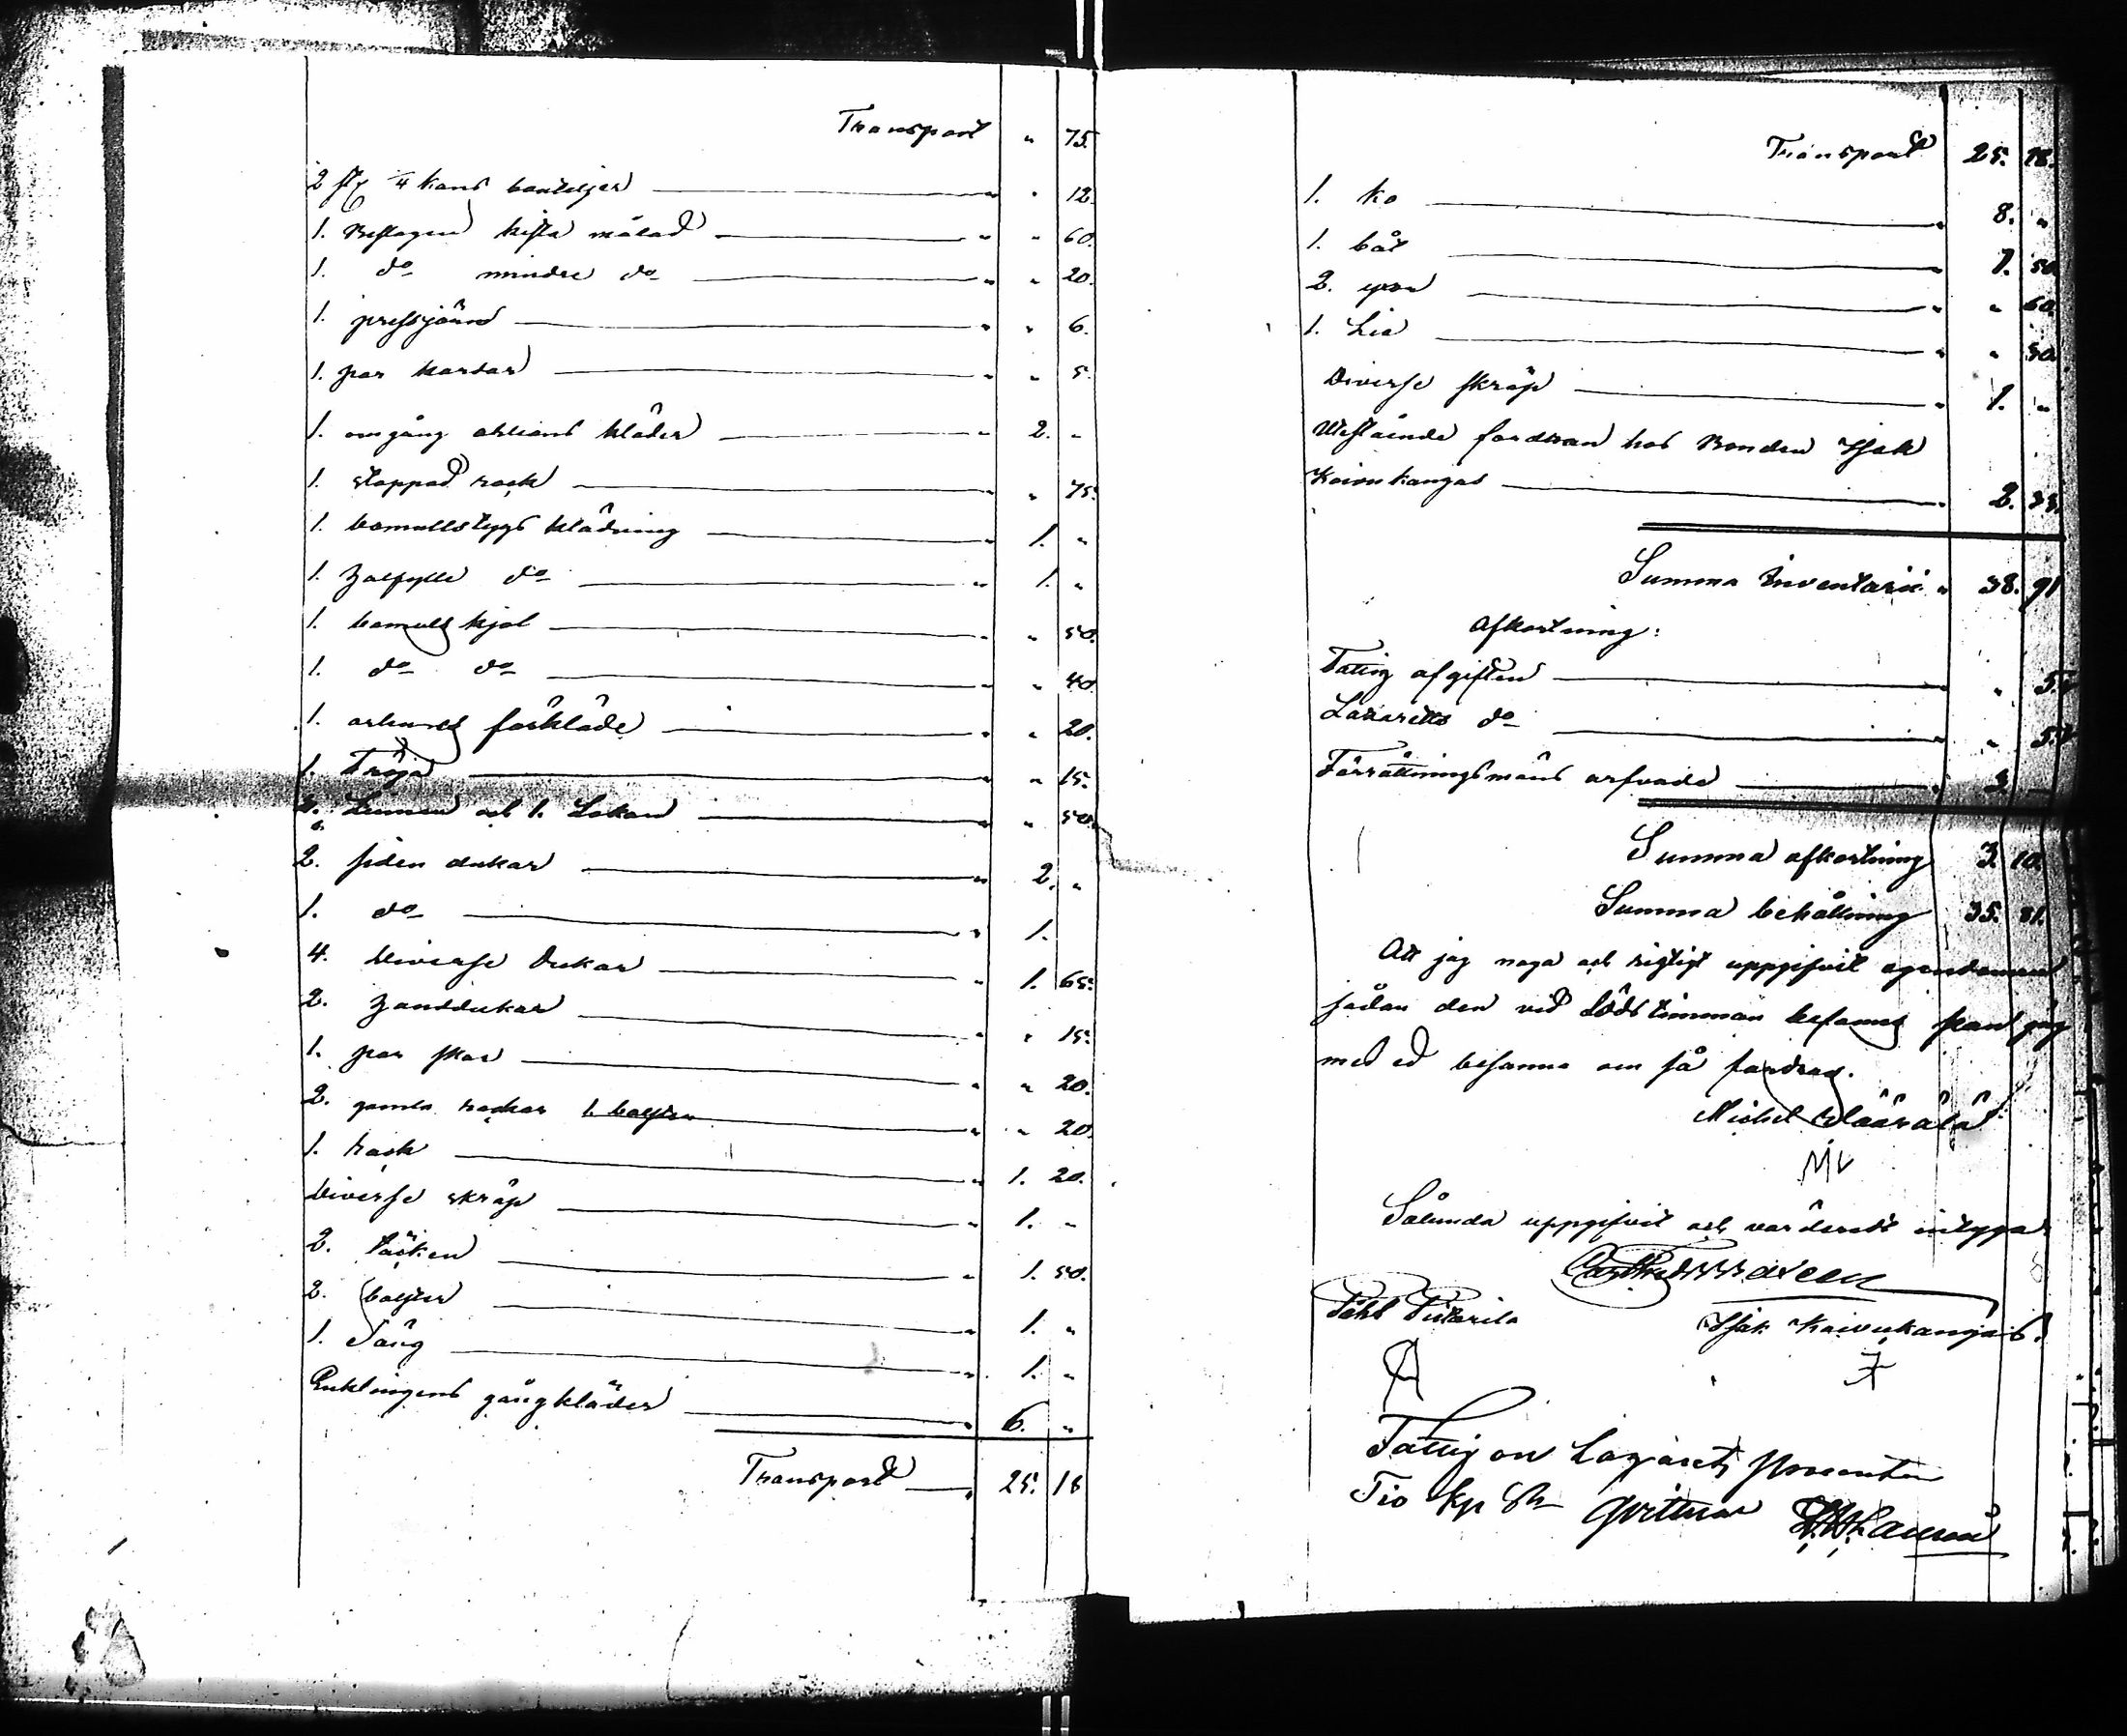 Transport " 75.
2 st 1/4 kans bouteljer " 12.
1. Beslagen kista målad " 60.
1. do mindre do " 20.
1. pressjärn " 6.
1. par kardar " 5.
1. omgång aklians kläder 2. "
1. stoppad rock " 75.
1. bomullstygs klädning 1. "
1. halfylle do 1. "
1. bomulls kjol " 50.
1. do do " 40.
1. förkläde " 20.
1. Tröja " 15.
Linnen och 1. Lakan " 50.
2. siden dukar 2. "
1. do 1.
4. Diverse Dukar 1. 65.
2. handdukar " 15.
1. par skor " 20.
2. gamla rockar 1. bolster " 20.
1. rock 1. 20.
Diverse skräp 1. "
2. täcken 1. 50.
2. bolster 1. "
1. Säng 1. "
Enklingens gångkläder 6. "
Transport 25. 18
Transport 25. 18.
1. ko 8. "
1. båt 1. 50
2. " 60.
1. Lia " 50
Diverse skräp 1. "
Utestående fordran hos Bonden Isak
Koivukangas 2. 33.
Summa Inventarii " 38. 91
Afkortning:
Fattig afgiften " 5.
Lazaretts do " 5.
Förrättningsmäns arfvode 3. —
Summa afkortning 3. 10.
Summa behållning 35. 81.
Att jag noga och rigtigt uppgifvit egendomen
sådan den vid dödstimman befanns kan jag
med ed besanna om så fordras.
Michel Määrälä
Sålunda uppgifvit och värderadt intyga
Pehl Pietarila Isak Koivukangas.
Fattig on Lazarets Procenten
Tio kp Sr qvitteras